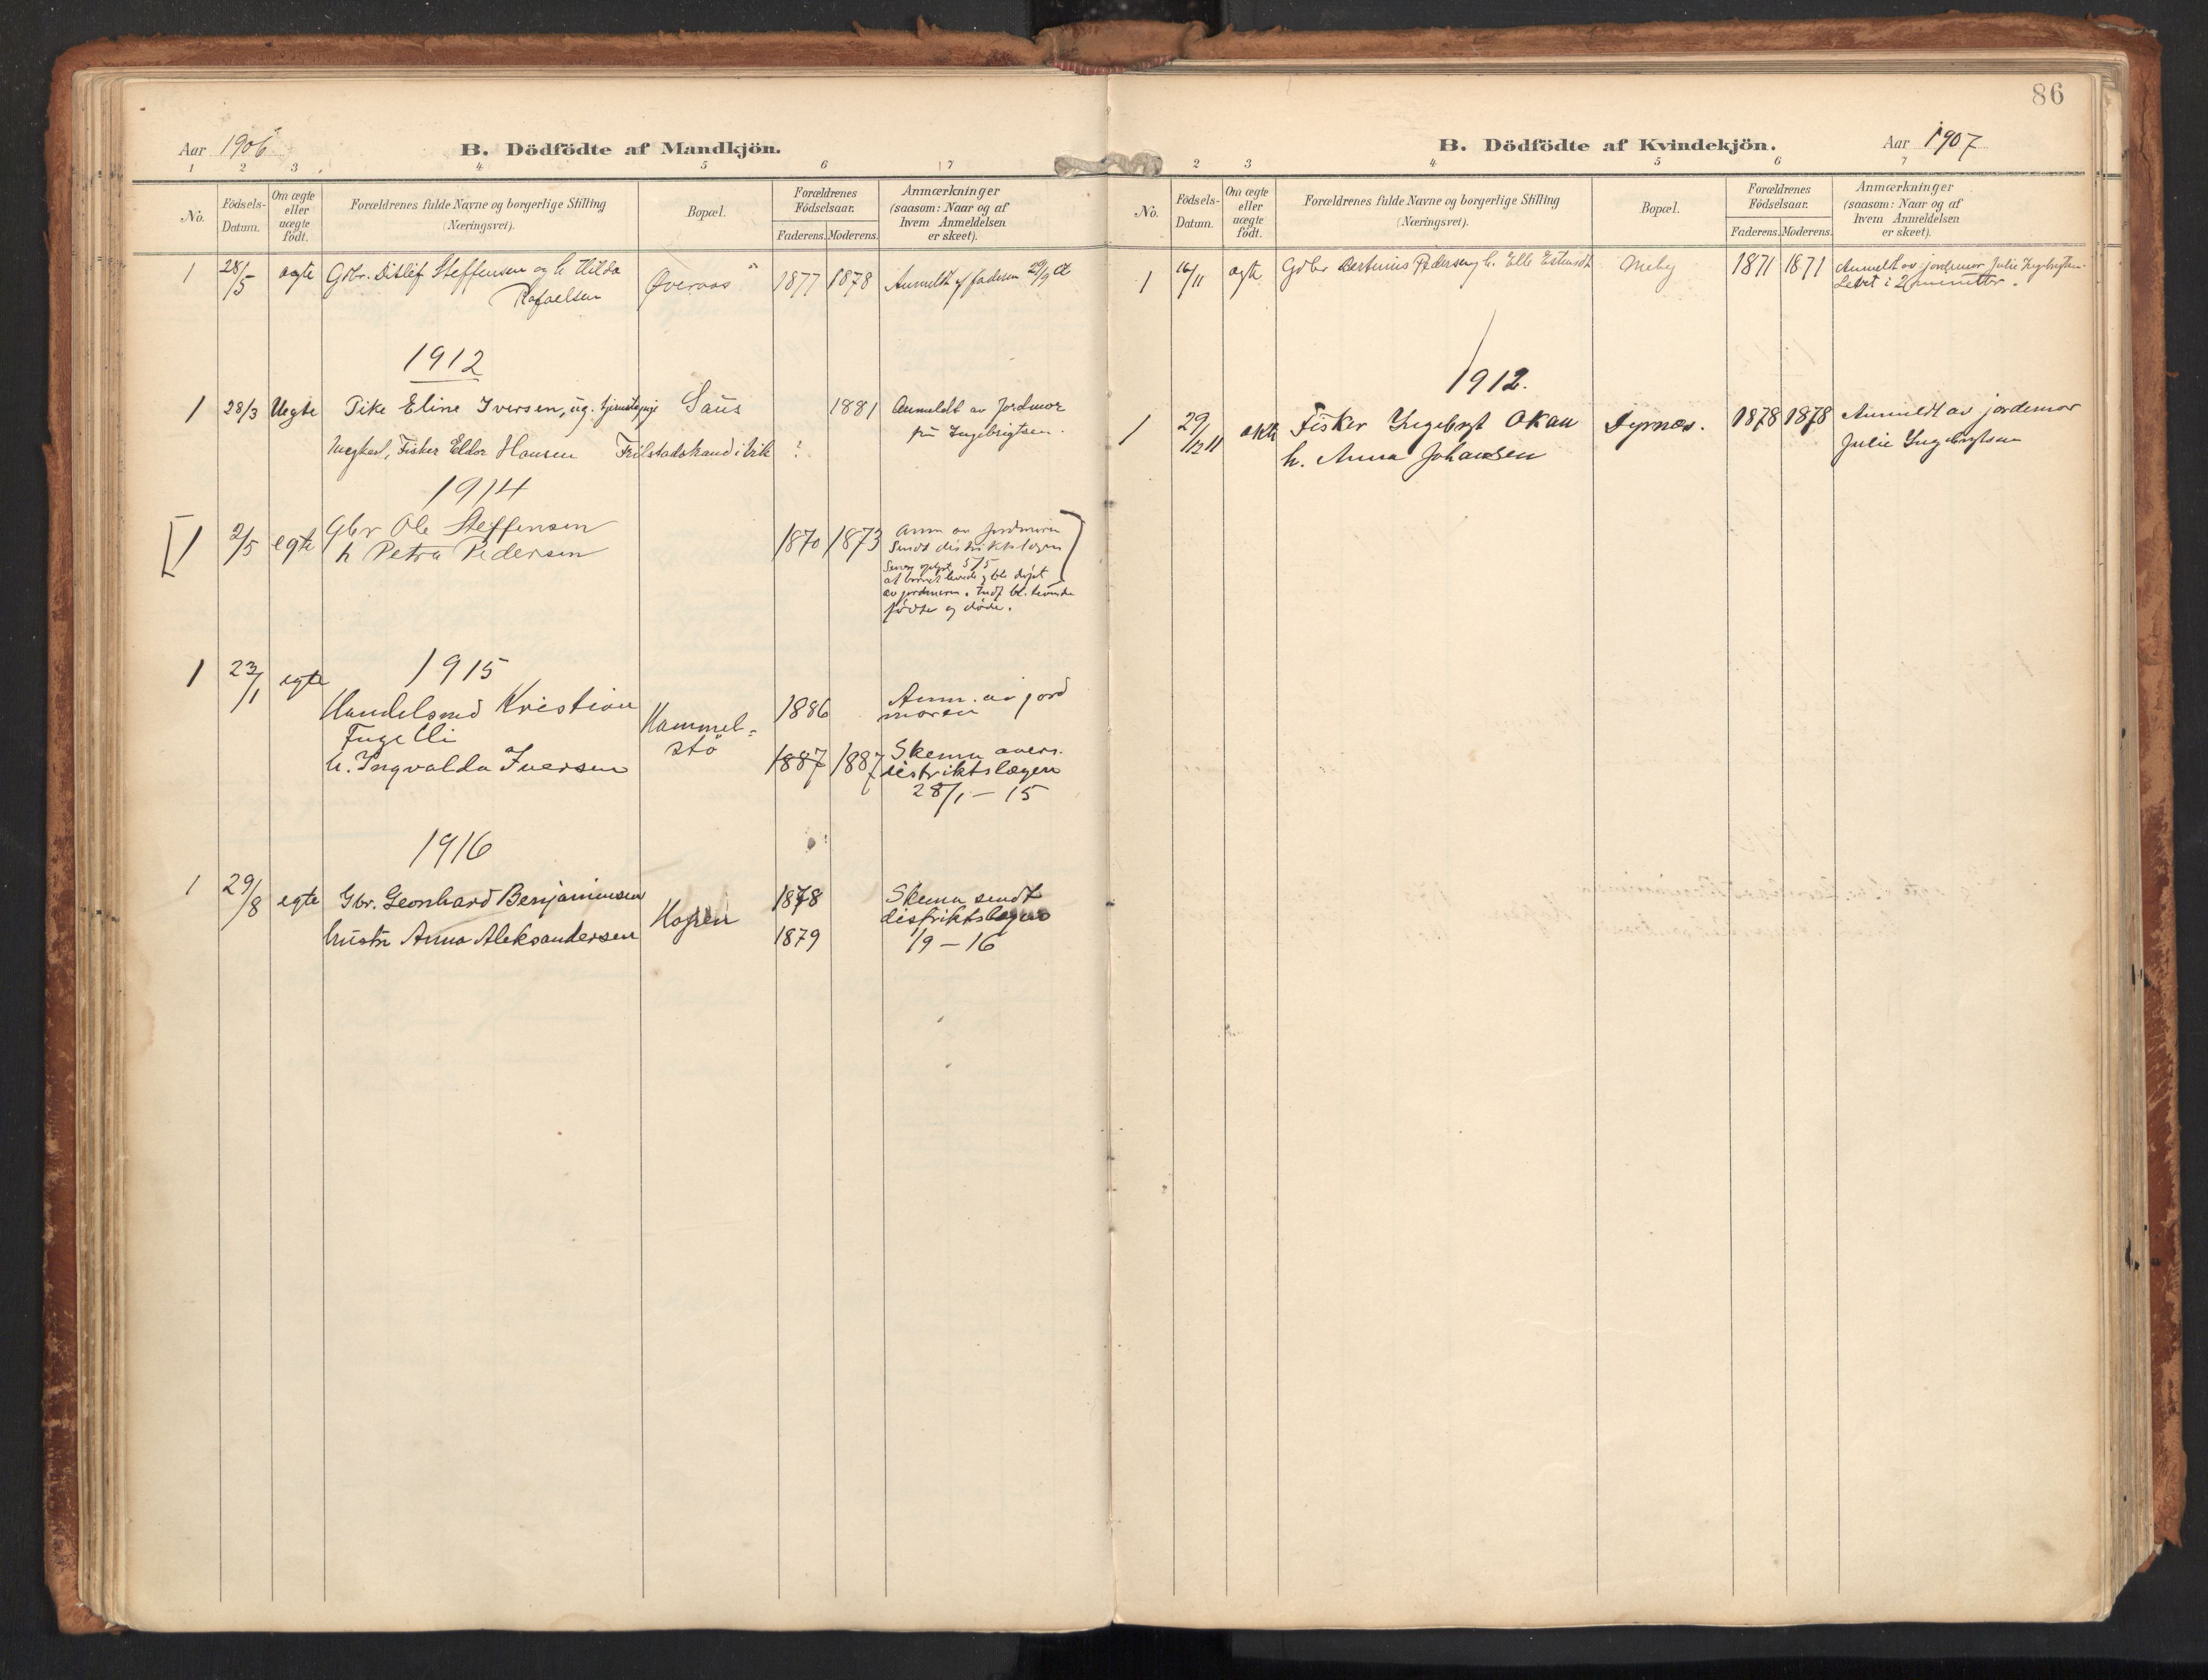 86
Aar 1906
B. Dödfödte af Mandkjön.
1 2 3 4 5 6 7
No.
Födsels-
Datum.
Om ægte
eller
uægte
födt.
Forældrenes fulde Navne og borgerlige Stilling
(Næringsvei).
Bopæl.
Forældrenes
Födselsaar.
Faderens. Moderens.
Anmærkninger
(saasom: Naar og af
hvem Anmeldelsen
er skeet).
1 28/5 ægte Gbr. Ditlef Steffensen og h Hilda Øveraas 1877 1878 Anmeldt af faderen 29/9
Rafaelsen
1912
1 28/3 Uegte Pike Eline Iversen, ug. Saus 1881 Anmeldt av Jordmor
Ungkarl, Fisker Eldor Hansen ? fru Ingebrigtsen.
1914
1 2/5 egte Gbr Ole Steffensen 1870 1873 Anm av Jordmoren
h Petra Pedersen Sendt distriktslægen
5/5
at barnet levede og ble døpt
av jordmoren. Indf bl. levende
fødte og døde.
1915
1 23/1 egte
Handelsmd Kristian 1886 Anm. av jord
Fugelli Hammel- moren
h. Ingvalda Iversen stö 1887 1887 Skema overs.
distriktslægen
28/1 - 15
1916
1 29/8 egte Gbr. Leonhard Benjaminsen Hopen 1878 Skema sendt
hustr Anna Aleksandersen 1879 distriktslægen
1/9 - 16
B. Dödfödte af Kvindekjön.
Aar 1907
2 3 4 5 6 7
No.
Födsels-
Datum.
Om ægte
eller
uægte
födt.
Forældrenes fulde Navne og borgerlige Stilling
(Næringsvei).
Bopæl.
Forældrenes
Födselsaar.
Faderens. Moderens.
Anmærkninger
(saasom: Naar og af
hvem Anmeldelsen
er skeet).
1 16/11 ægte Gdbr Bertinius Pedersen og h. Elle 1871 1871 Anmeldt av jordemor Julie Ingebrigtsen.
Levet i 2 minutter.
1912.
1 29/12 11 ekte Fisker Ingebrgt Okan Dyrnes. 1878 1878 Anmeldt av jordemor
h. Anna Johansen Julie Ingebrigtsen